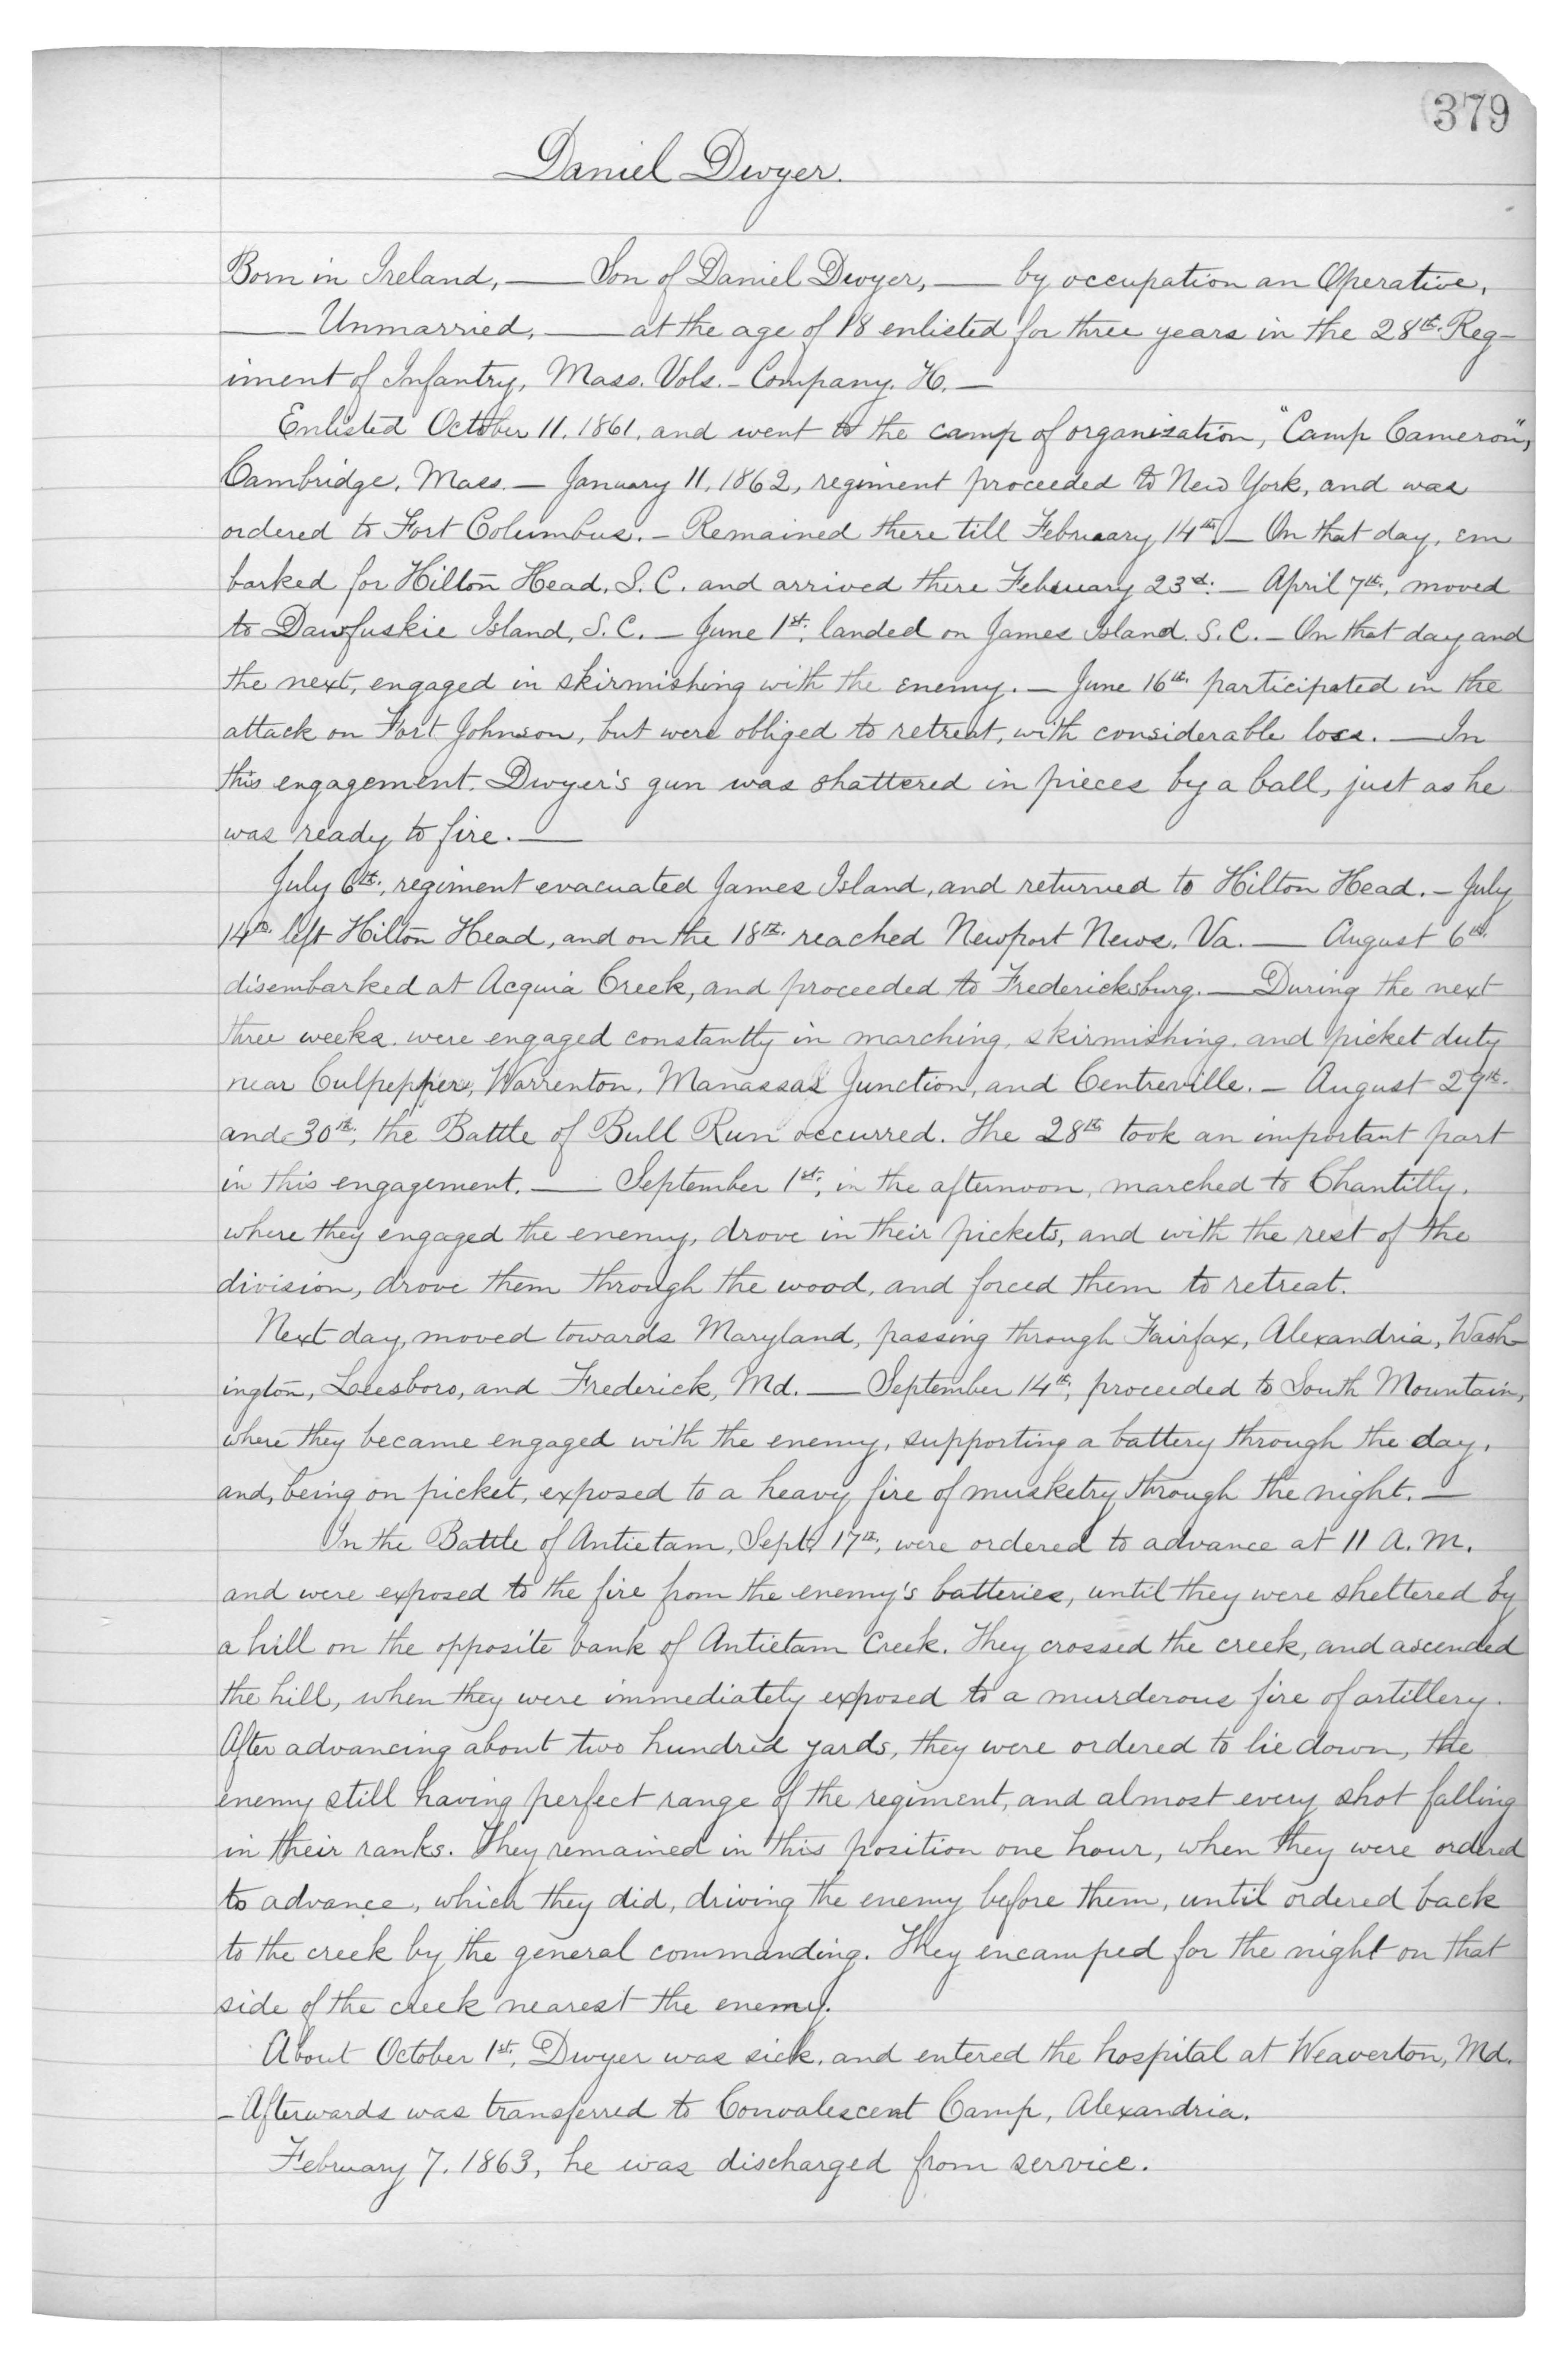 379
Daniel Dwyer.
Born in Ireland, — Son of Daniel Dwyer, — by occupation an Operative,
— Unmarried, — at the age of 18 enlisted for three years in the 28th. Reg-
iment of Infantry, Mass. Vols. - Company. H. —
Enlisted October 11. 1861, and went to the camp of organization, "Camp Cameron",
Cambridge, Mass. — January 11, 1862, regiment proceeded to New York, and was
ordered to Fort Columbus. - Remained there till February 14th. — On that day, em
barked for Hilton Head, S.C. and arrived there February 23d. — April 7th, moved
to Dawfuskie Island, S.C. — June 1st, landed on James Island. S.C. - On that day and
the next, engaged in skirmishing with the enemy. — June 16th. participated in the
attack on Fort Johnson, but were obliged to retreat, with considerable loss. — In
this engagement. Dwyer's gun was shattered in pieces by a ball, just as he
was ready to fire. —
July 6th, regiment evacuated James Island, and returned to Hilton Head. - July
14th. left Hilton Head, and on the 18th. reached Newport News, Va. — August 6th.
disembarked at Acquia Creek, and proceeded to Fredericksburg. — During the next
three weeks. were engaged constantly in marching, skirmishing, and picket duty
near Culpepper, Warrenton, Manassas Junction, and Centreville. - August 29th.
and 30th, the Battle of Bull Run occurred. The 28th took an important part
in this engagement. — September 1st, in the afternoon, marched to Chantilly,
where they engaged the enemy, drove in their pickets, and with the rest of the
division, drove them through the wood, and forced them to retreat.
Next day, moved towards Maryland, passing through Fairfax, Alexandria, Wash-
ington, Leesboro, and Frederick, Md. — September 14th, proceeded to South Mountain,
where they became engaged with the enemy, supporting a battery through the day,
and, being on picket, exposed to a heavy fire of musketry through the night. —
In the Battle of Antietam, Sept. 17th, were ordered to advance at 11 A.M.
and were exposed to the fire from the enemy's batteries, until they were sheltered by
a hill on the opposite bank of Antietam Creek. They crossed the creek, and ascended
the hill, when they were immediately exposed to a murderous fire of artillery.
After advancing about two hundred yards, they were ordered to lie down, the
enemy still having perfect range of the regiment, and almost every shot falling
in their ranks. They remained in this position one hour, when they were ordered
to advance, which they did, driving the enemy before them, until ordered back
to the creek by the general commanding. They encamped for the night on that
side of the creek nearest the enemy.
About October 1st, Dwyer was sick, and entered the hospital at Weaverton, Md.
- Afterwards was transferred to Convalescent Camp, Alexandria.
February 7. 1863, he was discharged from service.